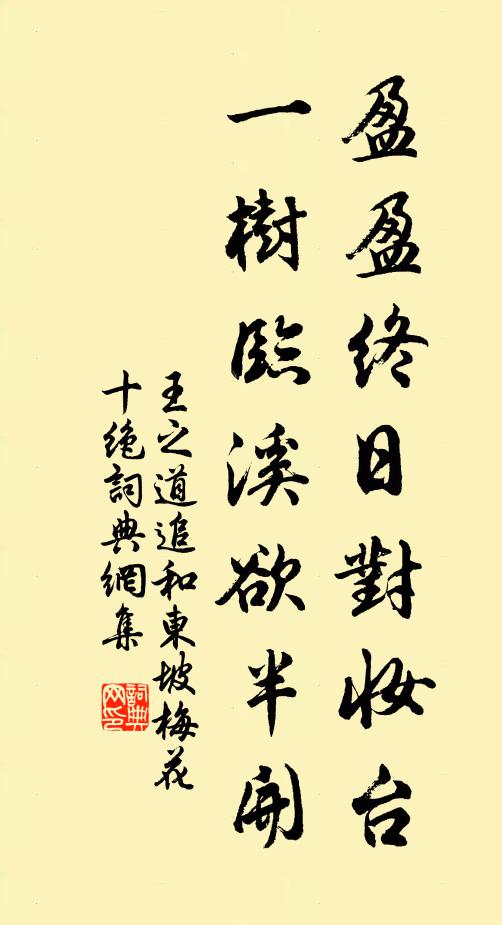 盈盈終日對妝台
一樹臨溪欲半開
王之道追和東坡梅花
十絶詞典網集
詞典网印